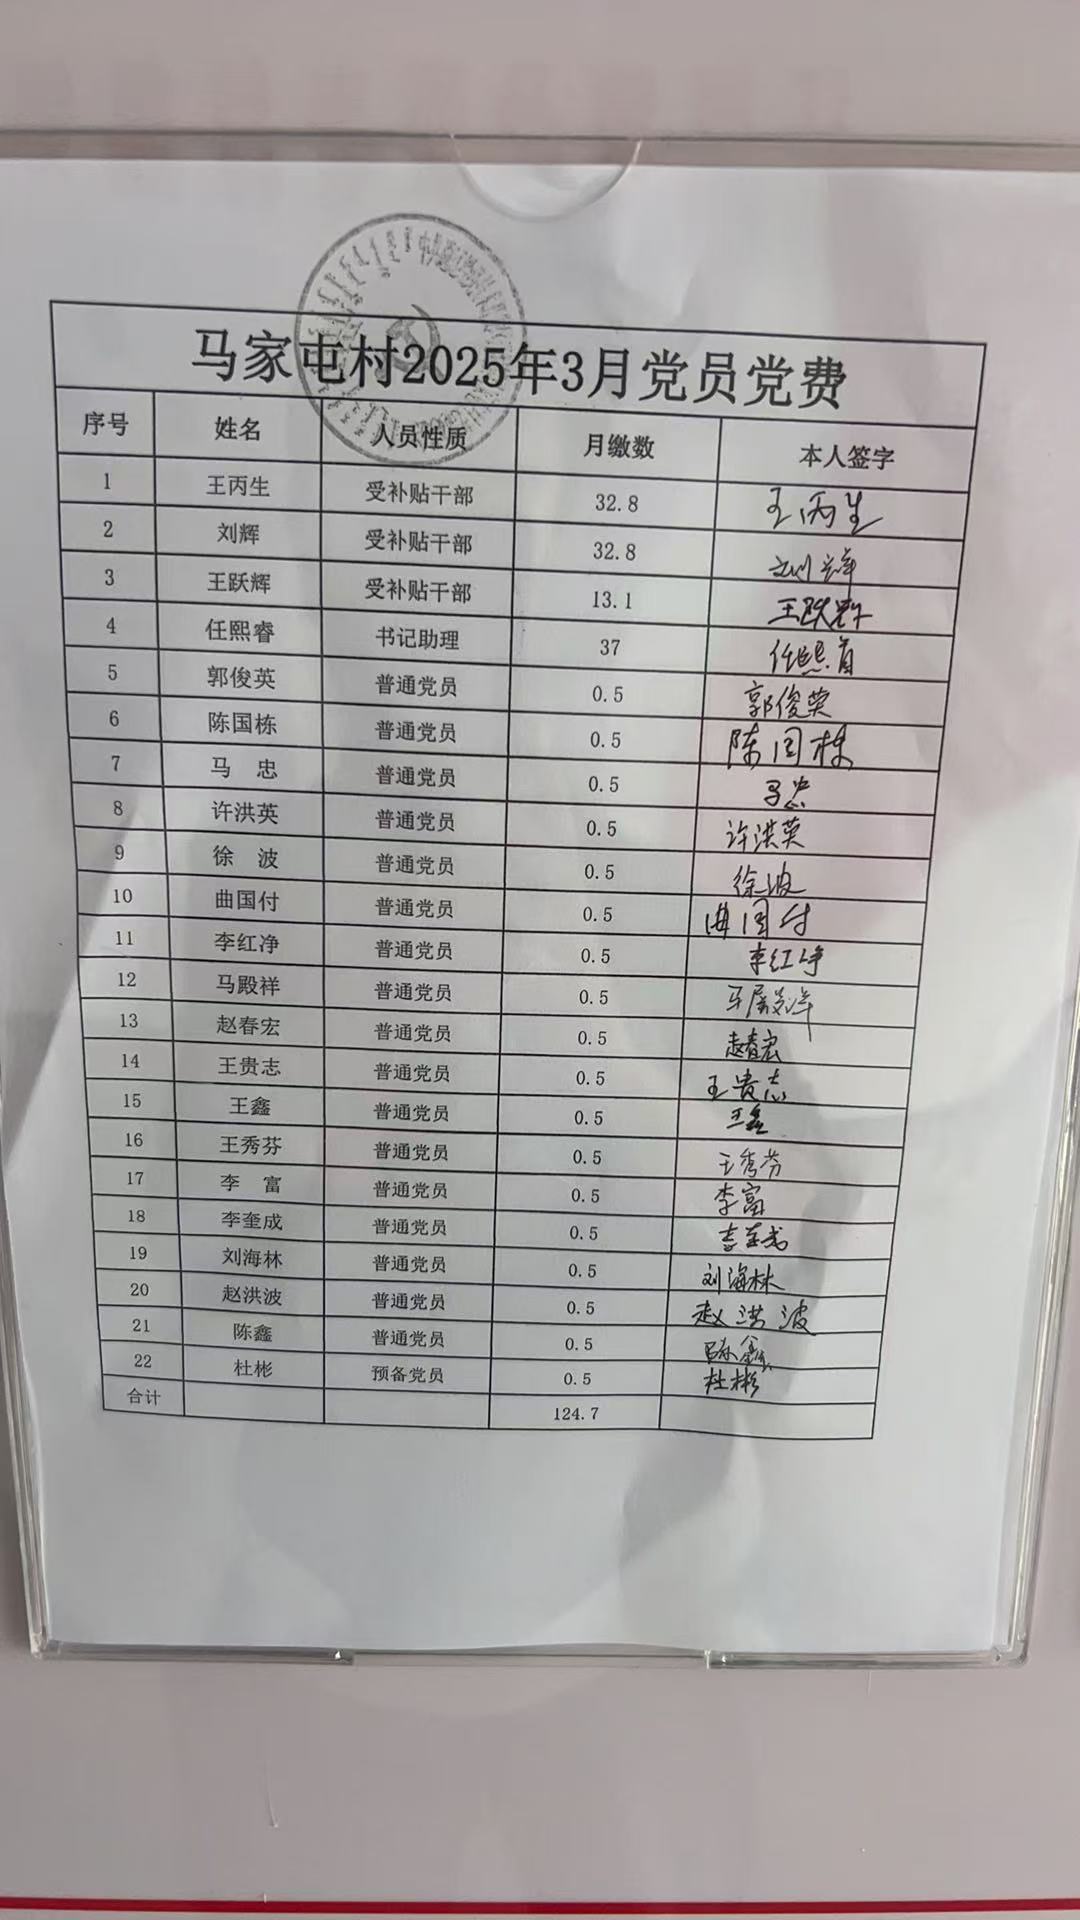 马家屯村2025年3月党员党费
序号 姓名 人员性质 月缴数 本人签字
1 王丙生 受补贴干部 32.8 王丙生
2 刘辉 受补贴干部 32.8 刘辉
3 王跃辉 受补贴干部 13.1 王跃辉
4 任熙睿 书记助理 37 任熙睿
5 郭俊英 普通党员 0.5 郭俊英
6 陈国栋 普通党员 0.5 陈国栋
7 马 忠 普通党员 0.5 马忠
8 许洪英 普通党员 0.5 许洪英
9 徐 波 普通党员 0.5 徐波
10 曲国付 普通党员 0.5 曲国付
11 李红净 普通党员 0.5 李红净
12 马殿祥 普通党员 0.5 马殿祥
13 赵春宏 普通党员 0.5 赵春宏
14 王贵志 普通党员 0.5 王贵志
15 王鑫 普通党员 0.5 王鑫
16 王秀芬 普通党员 0.5 王秀芬
17 李 富 普通党员 0.5 李富
18 李奎成 普通党员 0.5 李奎成
19 刘海林 普通党员 0.5 刘海林
20 赵洪波 普通党员 0.5 赵洪波
21 陈鑫 普通党员 0.5 陈鑫
22 杜彬 预备党员 0.5 杜彬
合计 124.7